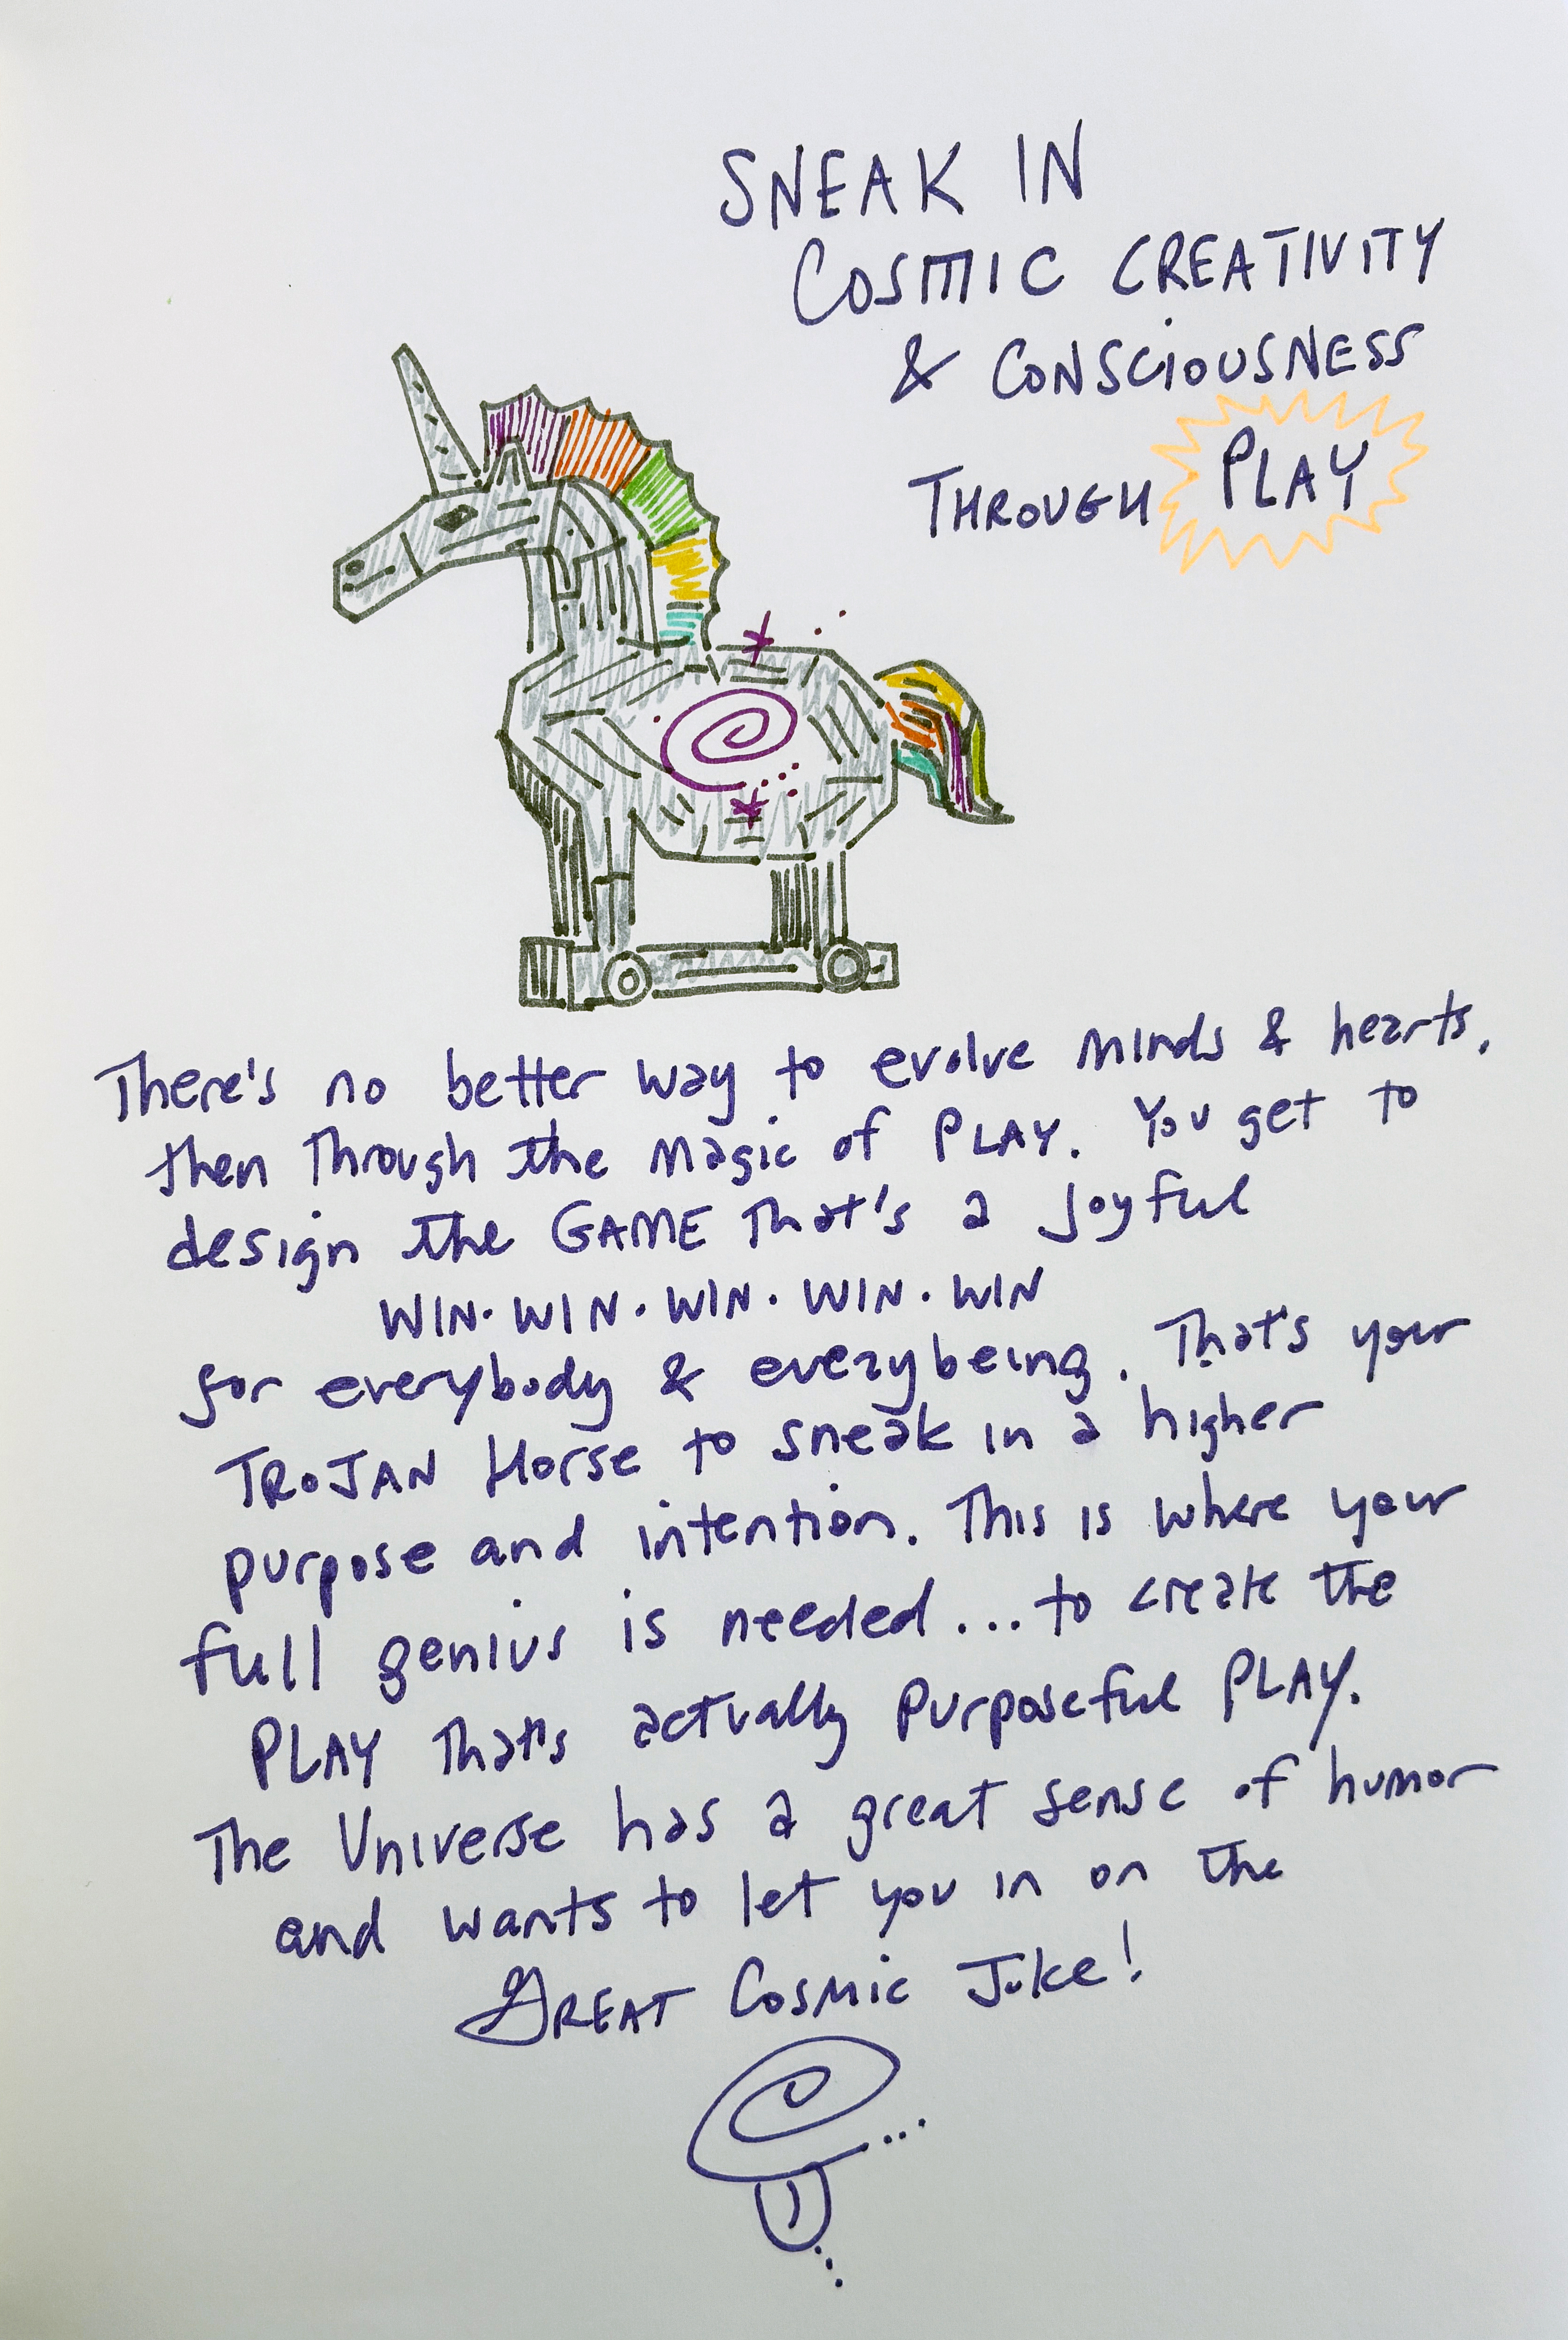 SNEAK IN
COSMIC CREATIVITY
& CONSCIOUSNESS
THROUGH PLAY
There's no better way to evolve minds & hearts,
then through the magic of PLAY. You get to
design the GAME that's a joyful
WIN • WIN • WIN • WIN • WIN
for everybody & everybeing. That's your
TROJAN Horse to sneak in a higher
purpose and intention. This is where your
full genius is needed... to create the
PLAY that's actually purposeful PLAY.
The Universe has a great sense of humor
and wants to let you in on the
GREAT COSMIC Joke!